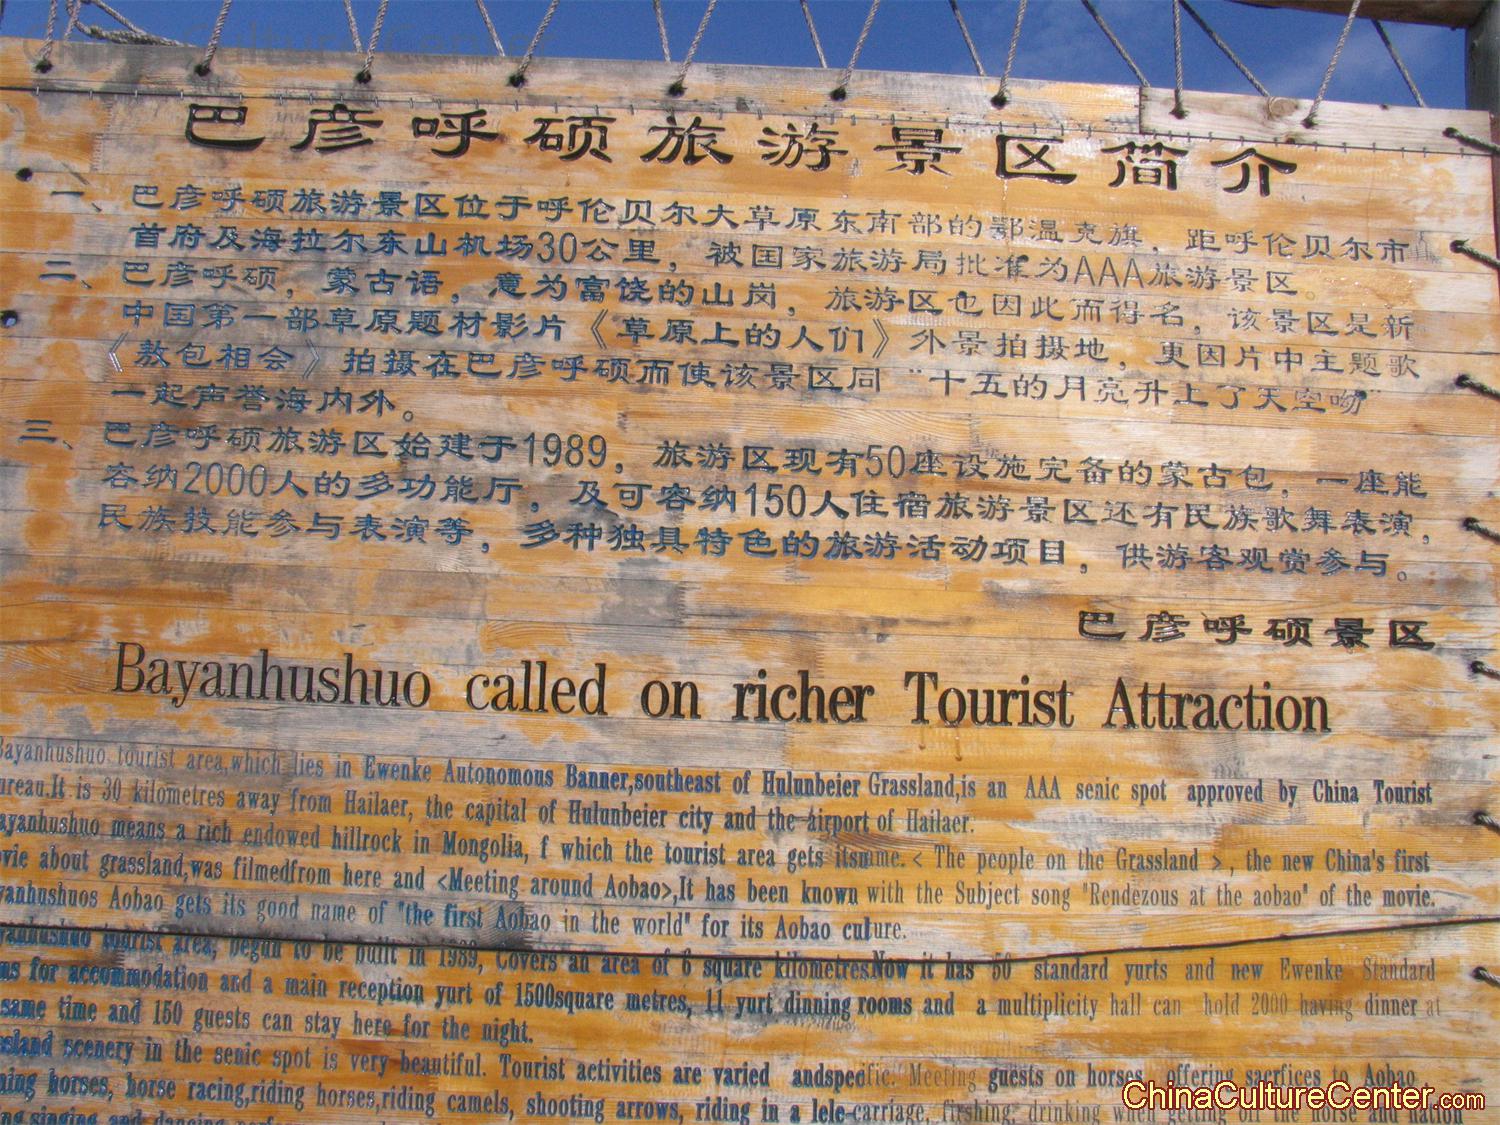 China Culture Center
巴彦呼硕旅游景区简介
一、巴彦呼硕旅游景区位于呼伦贝尔大草原东南部的鄂温克旗，距呼伦贝尔市
首府及海拉尔东山机场30公里，被国家旅游局批准为AAA旅游景区。
二、巴彦呼硕，蒙古语，意为富饶的山岗，旅游区也因此而得名，该景区是新
中国第一部草原题材影片《草原上的人们》外景拍摄地，更因片中主题歌
《敖包相会》拍摄在巴彦呼硕而使该景区同“十五的月亮升上了天空呦”
一起声誉海内外。
三、巴彦呼硕旅游区始建于1989，旅游区现有50座设施完备的蒙古包，一座能
容纳2000人的多功能厅，及可容纳150人住宿旅游景区还有民族歌舞表演，
民族技能参与表演等，多种独具特色的旅游活动项目，供游客观赏参与。
巴彦呼硕景区
Bayanhushuo called on richer Tourist Attraction
Bayanhushuo tourist area,which lies in Ewenke Autonomous Banner,southeast of Hulunbeier Grassland,is an AAA senic spot approved by China Tourist
ureau.It is 30 kilometres away from Hailaer, the capital of Hulunbeier city and the airport of Hailaer.
ayanhushuo means a rich endowed hillrock in Mongolia, f which the tourist area gets its < The people on the Grassland >, the new China's first
vie about grassland,was filmedfrom here and <Meeting around Aobao>,It has been known with the Subject song "Rendezous at the aobao" of the movie.
yanhushuos Aobao gets its good name of "the first Aobao in the world" for its Aobao culture.
yanhushuo tourist area, begun to be built in 1989, Covers an area of 6 square kilometresNow it has 50 standard yurts and new Ewenke Standard
ms for accommodation and a main reception yurt of 1500square metres, 11 yurt dinning rooms and a multiplicity hall can hold 2000 having dinner at
same time and 150 guests can stay here for the night.
ssland scenery in the senic spot is very beautiful. Tourist activities are varied andspecific. Meeting guests on horses, offering sacrfices to Aobao,
horses, horse racing,riding horses,riding camels, shooting arrows, riding in a lele-carriage, firshing, drinking when getting off the horse and nation
singing and dancing
ChinaCultureCenter.com